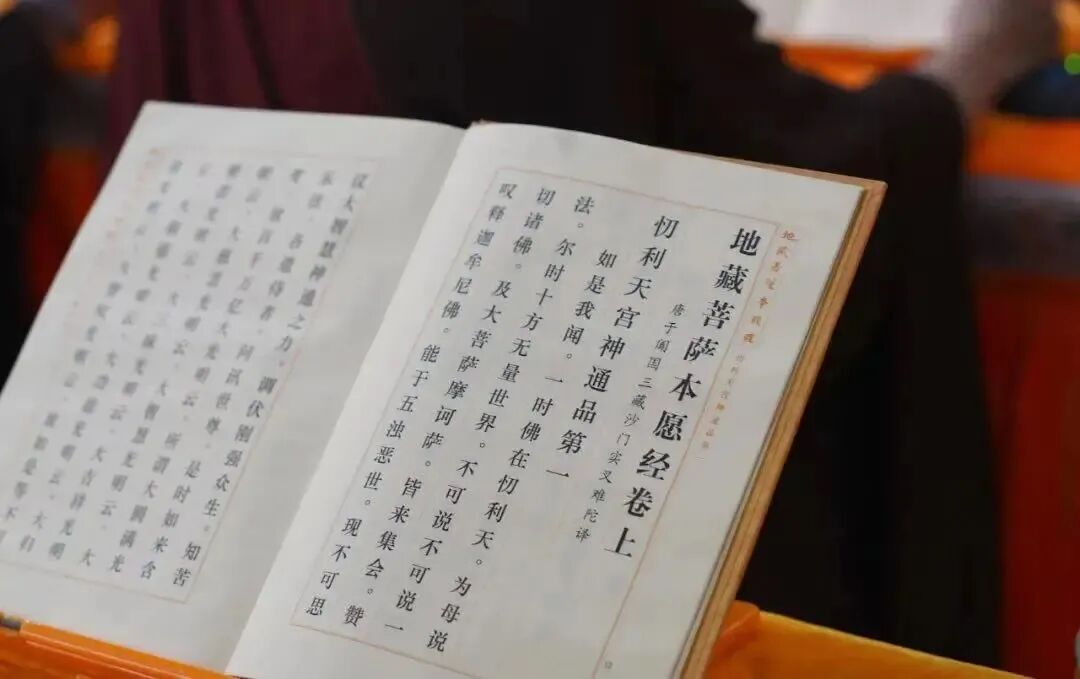 地藏菩萨本愿经 忉利天宫神通品第一
地藏菩萨本愿经卷上
唐于阗国三藏沙门实叉难陀译
忉利天宫神通品第一
如是我闻。一时佛在忉利天。为母说
法。尔时十方无量世界。不可说不可说一
切诸佛。及大菩萨摩诃萨。皆来集会。赞
叹释迦牟尼佛。能于五浊恶世。现不可思
议大智慧神通之力。调伏刚强众生。知苦
乐法。各遣侍者。问讯世尊。是时如来含
笑。放百千万亿大光明云。所谓大圆满光
明云。大慈悲光明云。大智慧光明云。大
般若光明云。大三昧光明云。大吉祥光明
云。大福德光明云。大功德光明云。大归
依光明云。大赞叹光明云。放如是等不